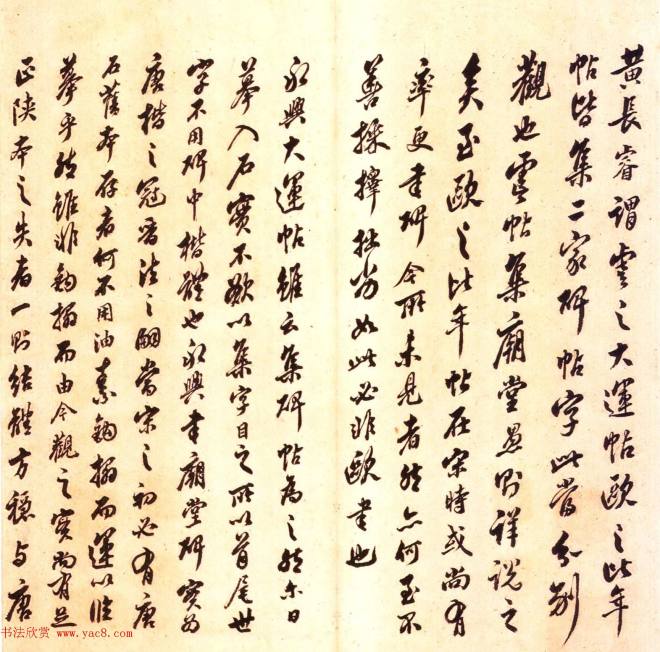 黄長睿謂虞之大運帖歐之比年
帖皆集二家碑帖字此當分别
觀也虞帖集廟堂愚别詳説之
矣至歐之比年帖在宋時或尚有
率更書碑今所未見者然亦何至不
善採擇拙劣如此必非歐書也
永興大運帖雖云集碑帖為之然亦曰
摹入石實不敢以集字目之所以首尾廿
字不用碑中楷體也永興書廟堂碑實為
唐楷之冠晋法之嗣當宋之初必有唐
石舊本存者何不用油素鉤搨而運以臨
摹乎然雖非鉤搨而由今觀之實尚有足
正陜本之失者一則結體方穩與唐
书法欣赏 www.yac8.com